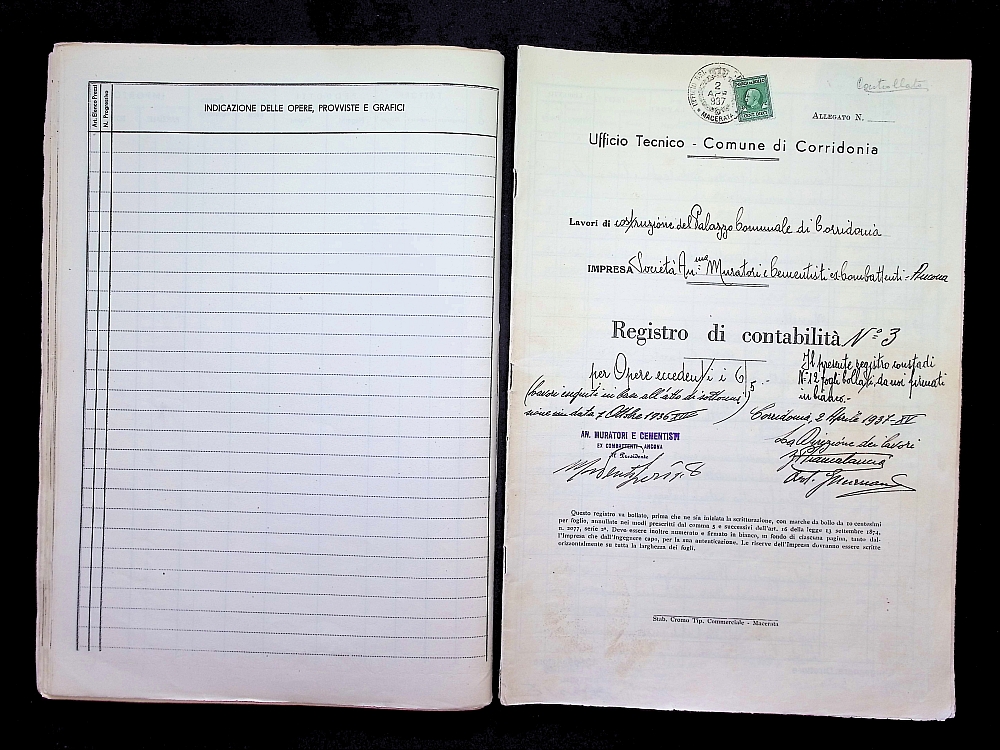 Art. Elenco Prezzi
N. Progressivo
INDICAZIONE DELLE OPERE, PROVVISTE E GRAFICI
Controllato
2
APR
937
MACERATA
ALLEGATO N.
Ufficio Tecnico - Comune di Corridonia
Lavori di costruzione del Palazzo Comunale di Corridonia
IMPRESA Società An.ma Muratori e Cementisti ex combattenti - Ancona
Registro di contabilità N° 3
per Opere eccedenti i 6/5
(lavori eseguiti in base all'atto di sottomis
sione in data 7 Ottobre 1936 XIV)
Il presente registro consta di
N. 12 fogli bollati, da noi firmati
in bianco.-
Corridonia, 2 Aprile 1937-XV
AN. MURATORI E CEMENTISTI
EX COMBATTENTI - ANCONA
Il Presidente
La Direzione dei lavori
Questo registro va bollato, prima che ne sia iniziata la scritturazione, con marche da bollo da 10 centesimi
per foglio, annullate nei modi prescritti dal comma 5 e successivi dell'art. 16 della legge 13 settembre 1874,
n. 2077, serie 2ª. Deve essere inoltre numerato e firmato in bianco, in fondo di ciascuna pagina, tanto dal-
l'Impresa che dall'Ingegnere capo, per la sua autenticazione. Le riserve dell'Impresa dovranno essere scritte
orizzontalmente su tutta la larghezza dei fogli.
Stab. Cromo Tip. Commerciale - Macerata